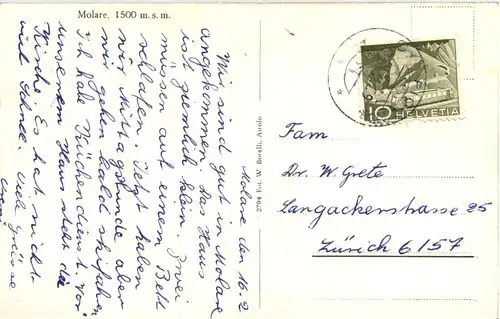 Molare, 1500 m. s. m.
Molare den 16.2
Wir sind gut in Molare
angekommen. Das Haus
ist ziemlich klein. Zwei
müssen auf einem Bett
schlafen. Jetzt haben
wir Mittagstunde aber
wir gehen bald skifahren
Ich habe Küchendienst. Vor
unserem Haus steht die
Kirche. Es hat nicht
viel Schnee viele Grüsse
Fot. W. Borelli, Airolo
10 HELVETIA
Fam.
Dr. W. Grete
Langackerstrasse 25
Zürich 6157